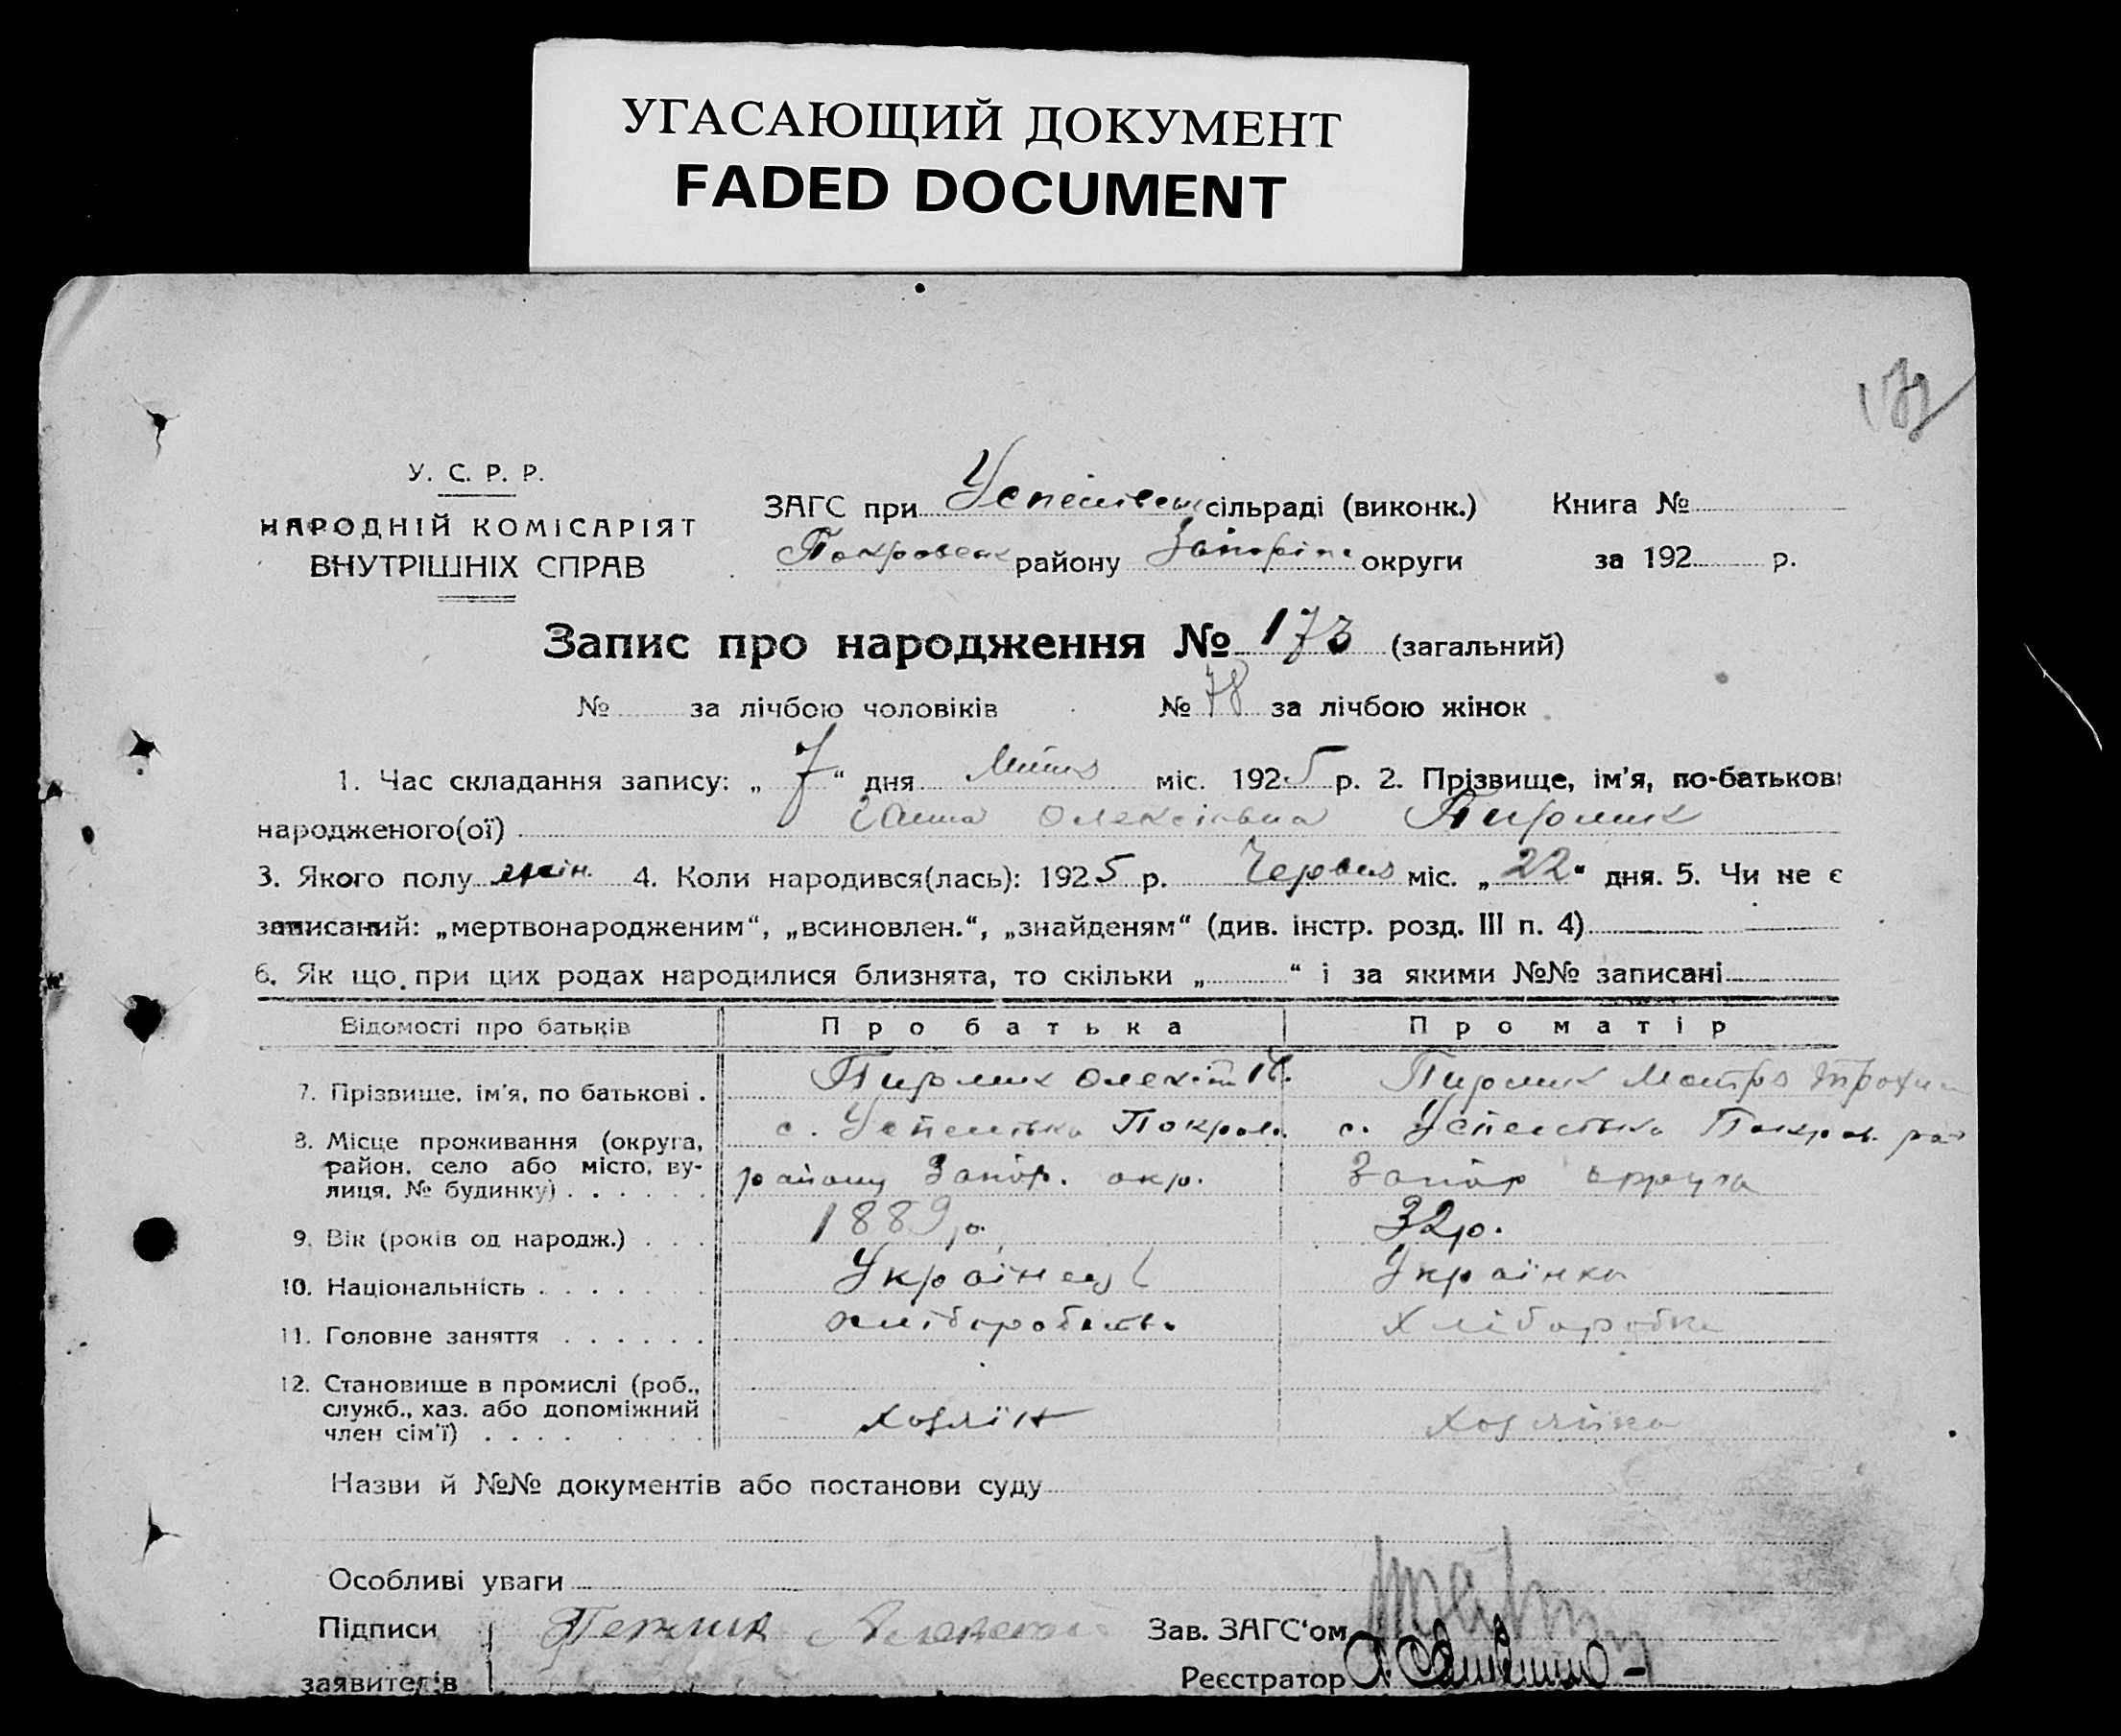 УГАСАЮЩИЙ ДОКУМЕНТ
FADED DOCUMENT
У. С. Р. Р.
НАРОДНІЙ КОМІСАРІЯТ
ВНУТРІШНІХ СПРАВ
ЗАГС при Успенівськ сільраді (виконк.)
Покровськ району Запоріж округи
Книга №
за 192 р.
Запис про народження № 173 (загальний)
№ за лічбою чоловіків № 78 за лічбою жінок
1. Час складання запису: „ 7 “ дня Липня міс. 1925 р. 2. Прізвище, ім'я, по-батькові
народженого(ої) Ганна Олексіївна
3. Якого полу жін. 4. Коли народився(лась): 1925 р. Червня міс. „ 22 “ дня. 5. Чи не є
записаний: „мертвонародженим“, „всиновлен.“, „знайденям“ (див. інстр. розд. III п. 4)
6. Як що при цих родах народилися близнята, то скільки „ “ і за якими №№ записані
Відомості про батьків Про батька Про матір
7. Прізвище, ім'я, по батькові .
8. Місце проживання (округа, с. Успенівка Покров. с. Успенівка Покров. рай
район, село або місто, ву- району Запор. окр. Запор округа
лиця, № будинку) . . . . . .
9. Вік (років од народж.) . . . 1889 р. 32 р.
10. Національність . . . . . . . Українець Українка
11. Головне заняття . . . . . . хлібороб Хліборобка
12. Становище в промислі (роб.,
служб., хаз. або допоміжний хозяїн хозяйка
член сім'ї) . . . .
Назви й №№ документів або постанови суду
Особливі уваги
Підписи
заявителів
Зав. ЗАГС'ом
Реєстратор